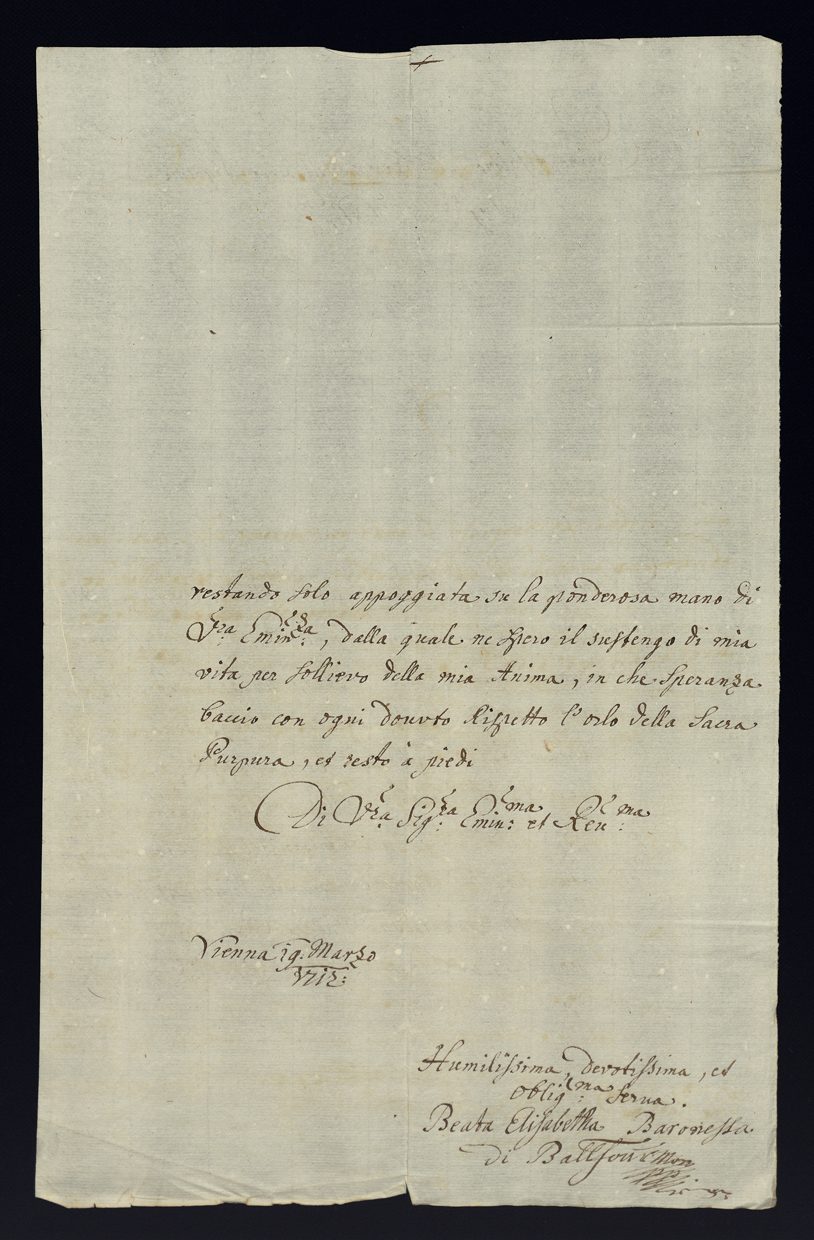 restando solo appoggiata su la ponderosa mano di
Vra Eminza, dalla quale ne spero il sustengo di mia
vita per sollievo della mia Anima, in che speranza
baccio con ogni douuto Rispetto l'orlo della Sacra
Purpura, et resto à piedi
Di Vra Sigria Emin:ma et Reu:ma
Vienna 19. Marzo
1712:
Humilissima, devotissima, et
oblig:ma serua.
Beata Elisabetha Baronessa
di Ballfour